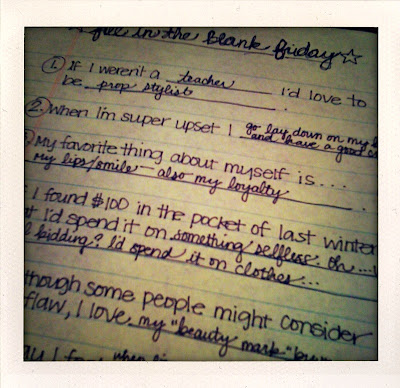 fill in the blank friday ☆
1. If I weren't a teacher I'd love to
be prop stylist.
2. When I'm super upset I go lay down on my
and have a good
My favorite thing about myself is...
my lips/smile - also my loyalty
I found $100 in the pocket of last winter
I'd spend it on something selfless. oh...
kidding? I'd spend it on clothes...
though some people might consider
flaw, I love my "beauty mark"